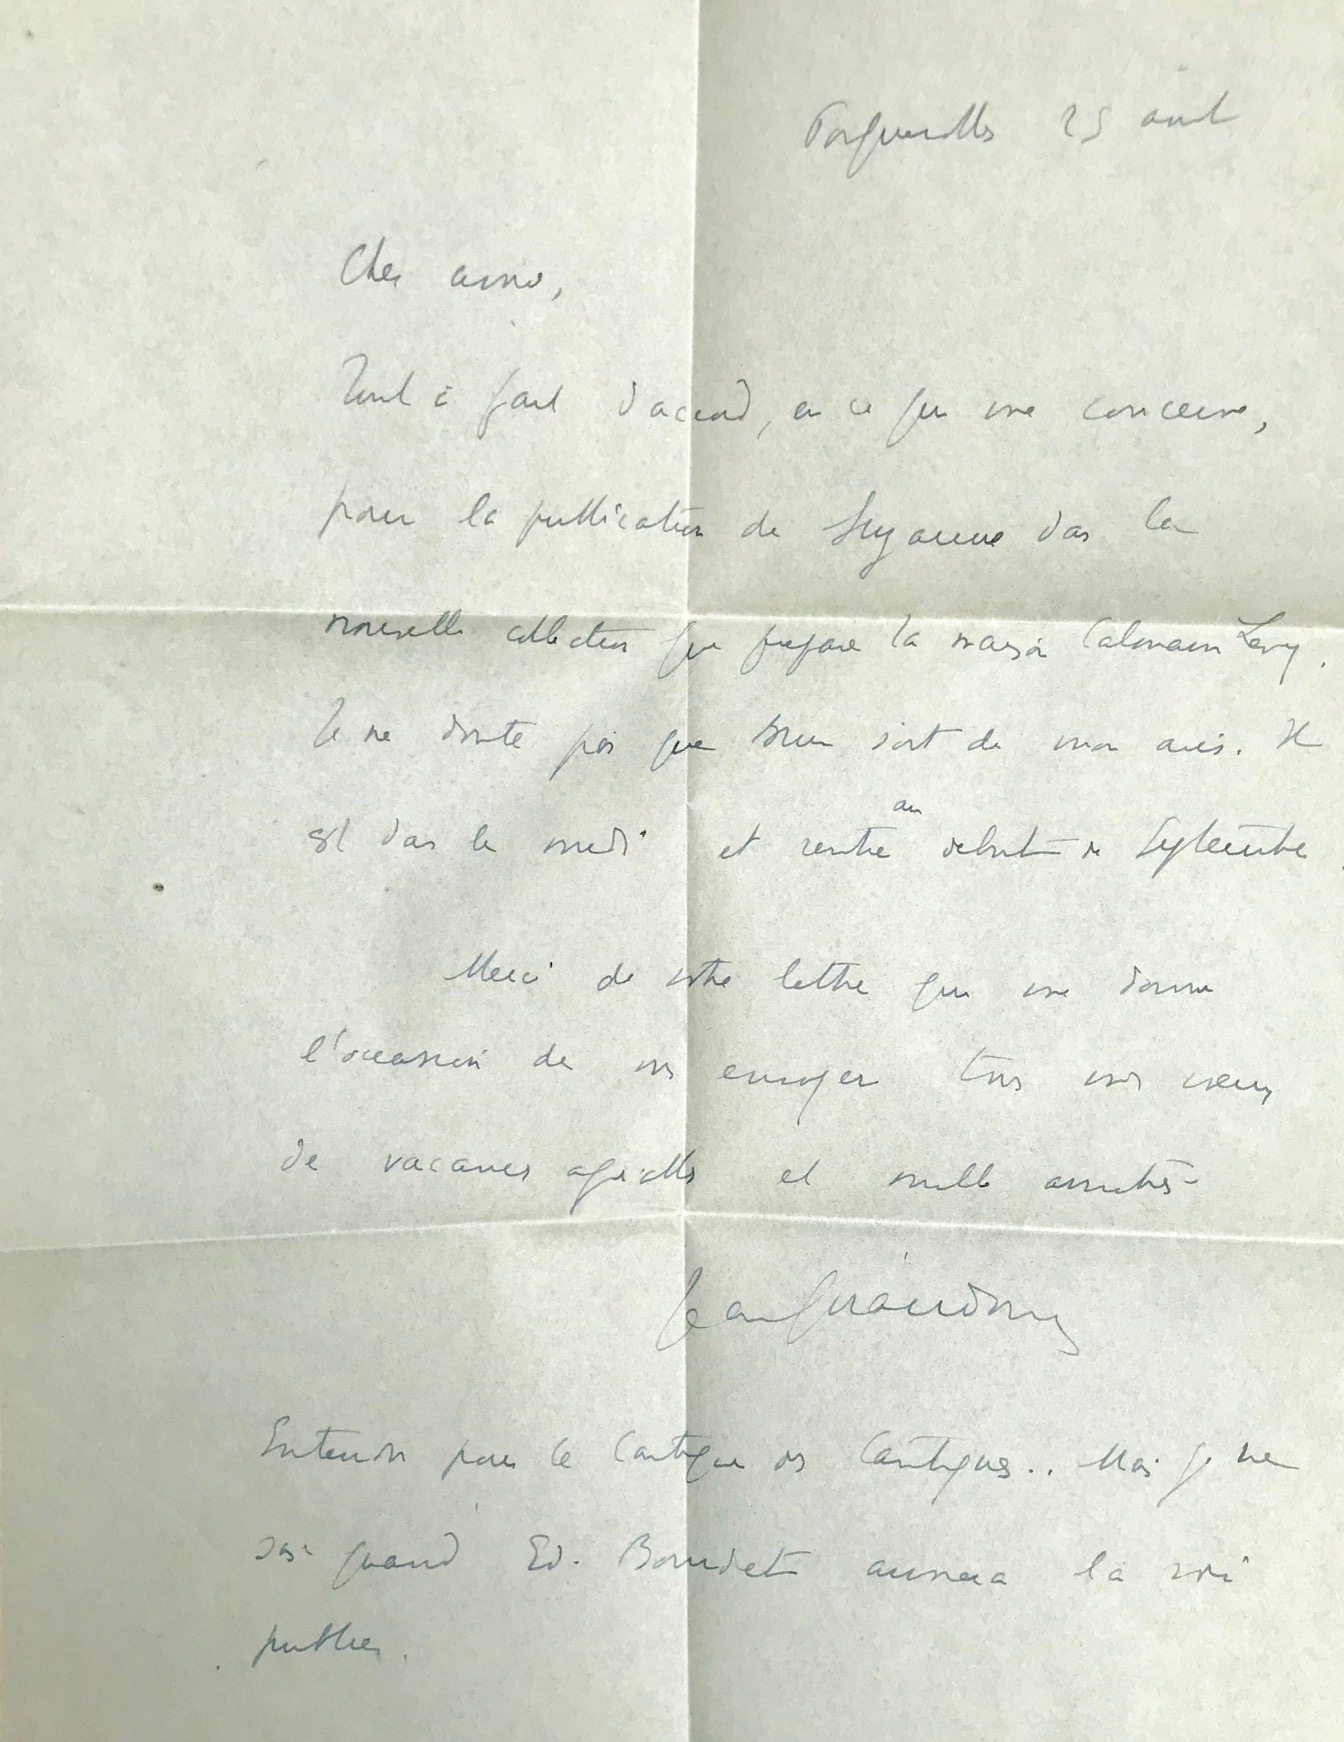 Porquerolles 25 août
Cher ami,
Tout à fait d'accord, en ce qui me concerne,
pour la publication de Suzanne dans la
nouvelle collection que prépare la maison Calmann Levy.
Je ne doute pas que soit de mon avis. Il
est dans le midi et rentre au début de Septembre.
Merci de votre lettre qui me donne
l'occasion de vous envoyer tous mes vœux
de vacances et mille amitiés
Jean Giraudoux
Entendu pour le Cantique des Cantiques.. Mais je ne
sais quand Ed. Bourdet aimera la voir
publier.